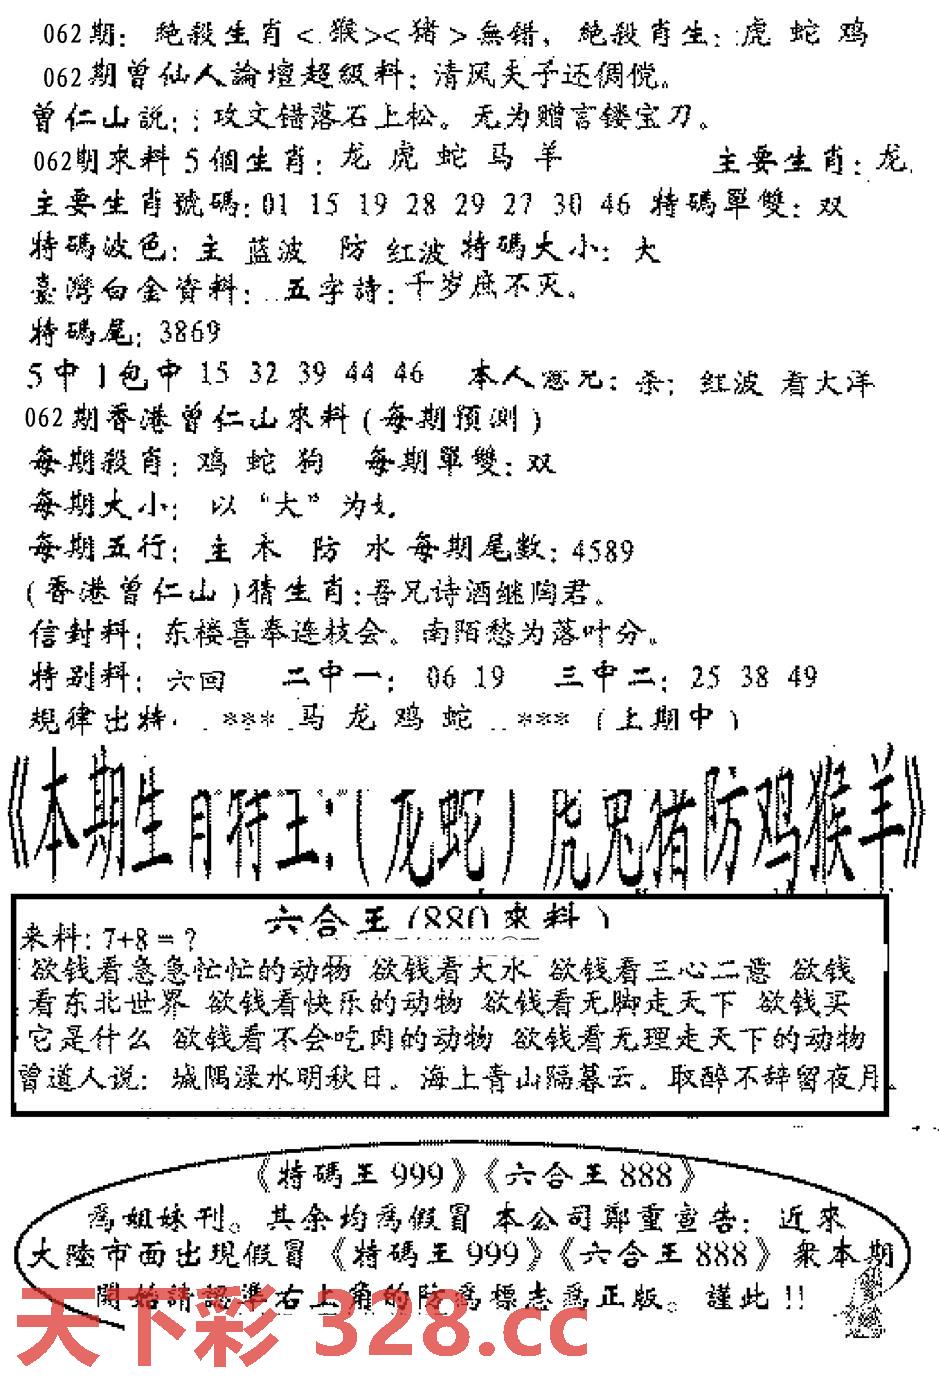 062期: 絶殺生肖<猴><猪>無错, 絶殺肖生: 虎 蛇 鸡
062期曾仙人論壇超級料: 清风天子还倜傥。
曾仁山説: 攻文错落石上松。无为赠言镂宝刀。
062期來料 5個生肖: 龙 虎 蛇 马 羊 主要生肖: 龙.
主要生肖號碼: 01 15 19 28 29 27 30 46 特碼單雙: 双
特碼波色: 主 蓝波 防 红波 特碼大小: 大
臺灣白金資料: 五字詩: 千岁庶不灭。
特碼尾: 3869
5中1包中 15 32 39 44 46 本人意見: 杀; 红波 看大洋
062期香港曾仁山來料(每期預測)
每期殺肖: 鸡 蛇 狗 每期單雙: 双
每期大小: 以“大”为
每期五行: 主 木 防 水 每期尾數: 4589
(香港曾仁山)猜生肖: 吾兄诗酒继陶君。
信封料: 东楼喜奉连枝会。南陌愁为落叶分。
特别料: 六回 二中一: 06 19 三中二: 25 38 49
規律出特. *** 马 龙 鸡 蛇 *** (上期中)
《本期生肖特王:(龙蛇)虎兔猪防鸡猴羊》
六合王(880來料)
来料: 7+8=?
欲钱看急急忙忙的动物 欲钱看大水 欲钱看三心二意 欲钱
看东北世界 欲钱看快乐的动物 欲钱看无脚走天下 欲钱买
它是什么 欲钱看不会吃肉的动物 欲钱看无理走天下的动物
曾道人说: 城隅渌水明秋日。海上青山隔暮云。取醉不辞留夜月.
《特碼王999》《六合王888》
爲姐妹刊。其余均爲假冒 本公司鄭重宣告: 近來
大陸市面出現假冒《特碼王999》《六合王888》衆本期
開始請認準右上角的防爲標志爲正版。謹此!!
天下彩 328.cc